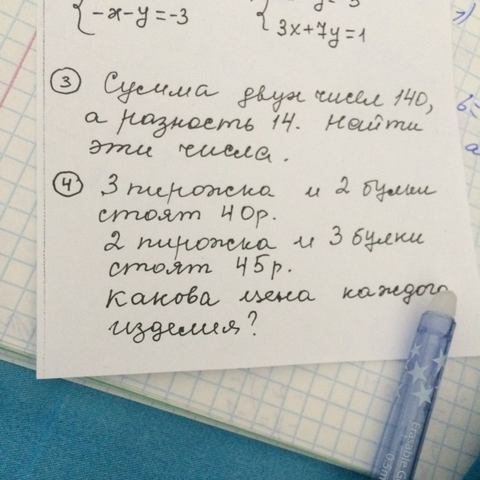 -x-y=-3
3x+7y=1
3 Сумма двух чисел 140,
а разность 14. Найти
эти числа.
4 3 пирожка и 2 булки
стоят 40р.
2 пирожка и 3 булки
стоят 45р.
Какова цена каждого
изделия?